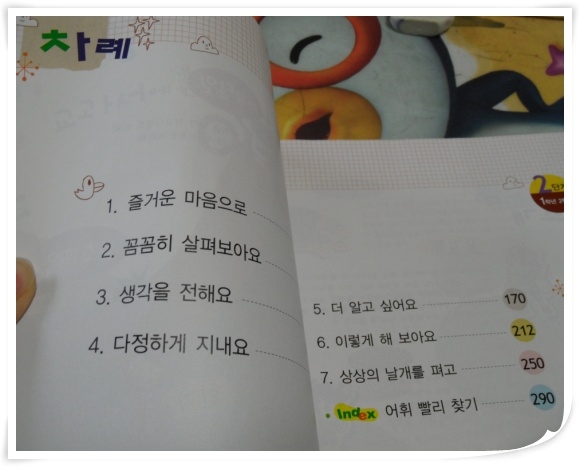 차례
1. 즐거운 마음으로
2. 꼼꼼히 살펴보아요
3. 생각을 전해요
4. 다정하게 지내요
2단계
1학년 2학
5. 더 알고 싶어요 170
6. 이렇게 해 보아요 212
7. 상상의 날개를 펴고 250
• Index 어휘 빨리 찾기 290